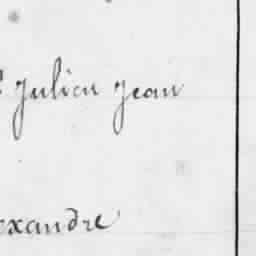 Julien Jean
exandre